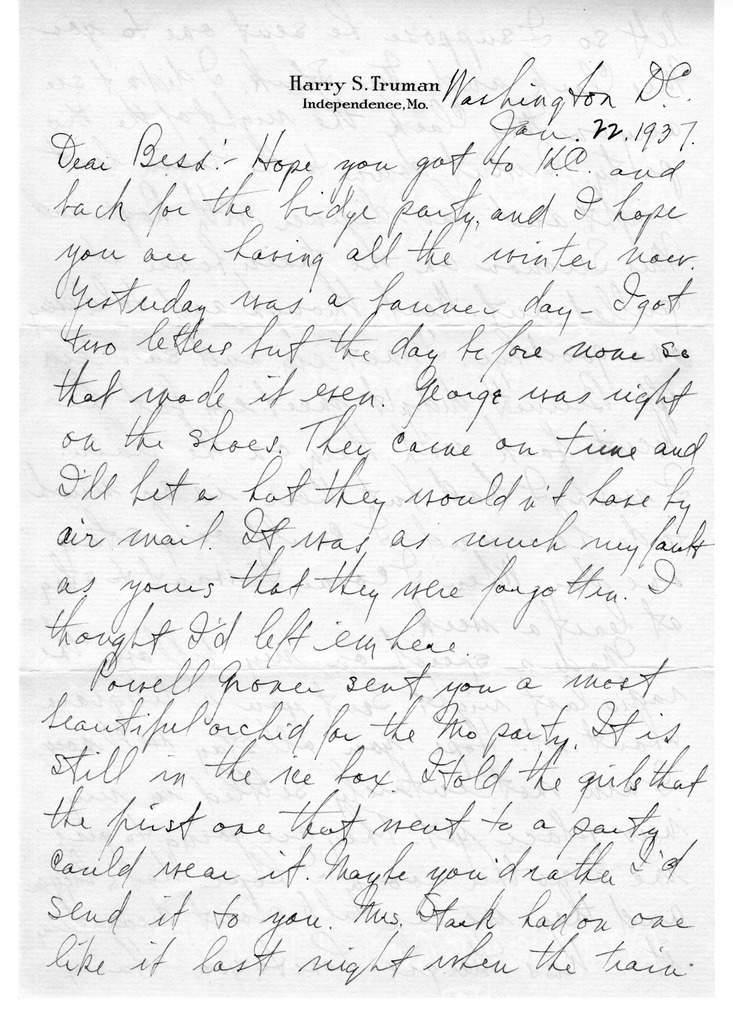 Harry S. Truman
Independence, Mo.
Washington D.C.
Jan. 22, 1937.
Dear Bess:- Hope you got to K.C. and
back for the bridge party, and I hope
you are having all the winter now.
Yesterday was a banner day - I got
two letters but the day before none so
that made it even. George was right
on the shoes. They came on time and
I'll bet a hat they wouldn't have by
air mail. It was as much my fault
as yours that they were forgotten. I
thought I'd left 'em here.
Powell Groner sent you a most
beautiful orchid for the Mo party. It is
still in the ice box. I told the girls that
the first one that went to a party
could wear it. Maybe you'd rather I'd
send it to you. Mrs. Stark had on one
like it last night when the train